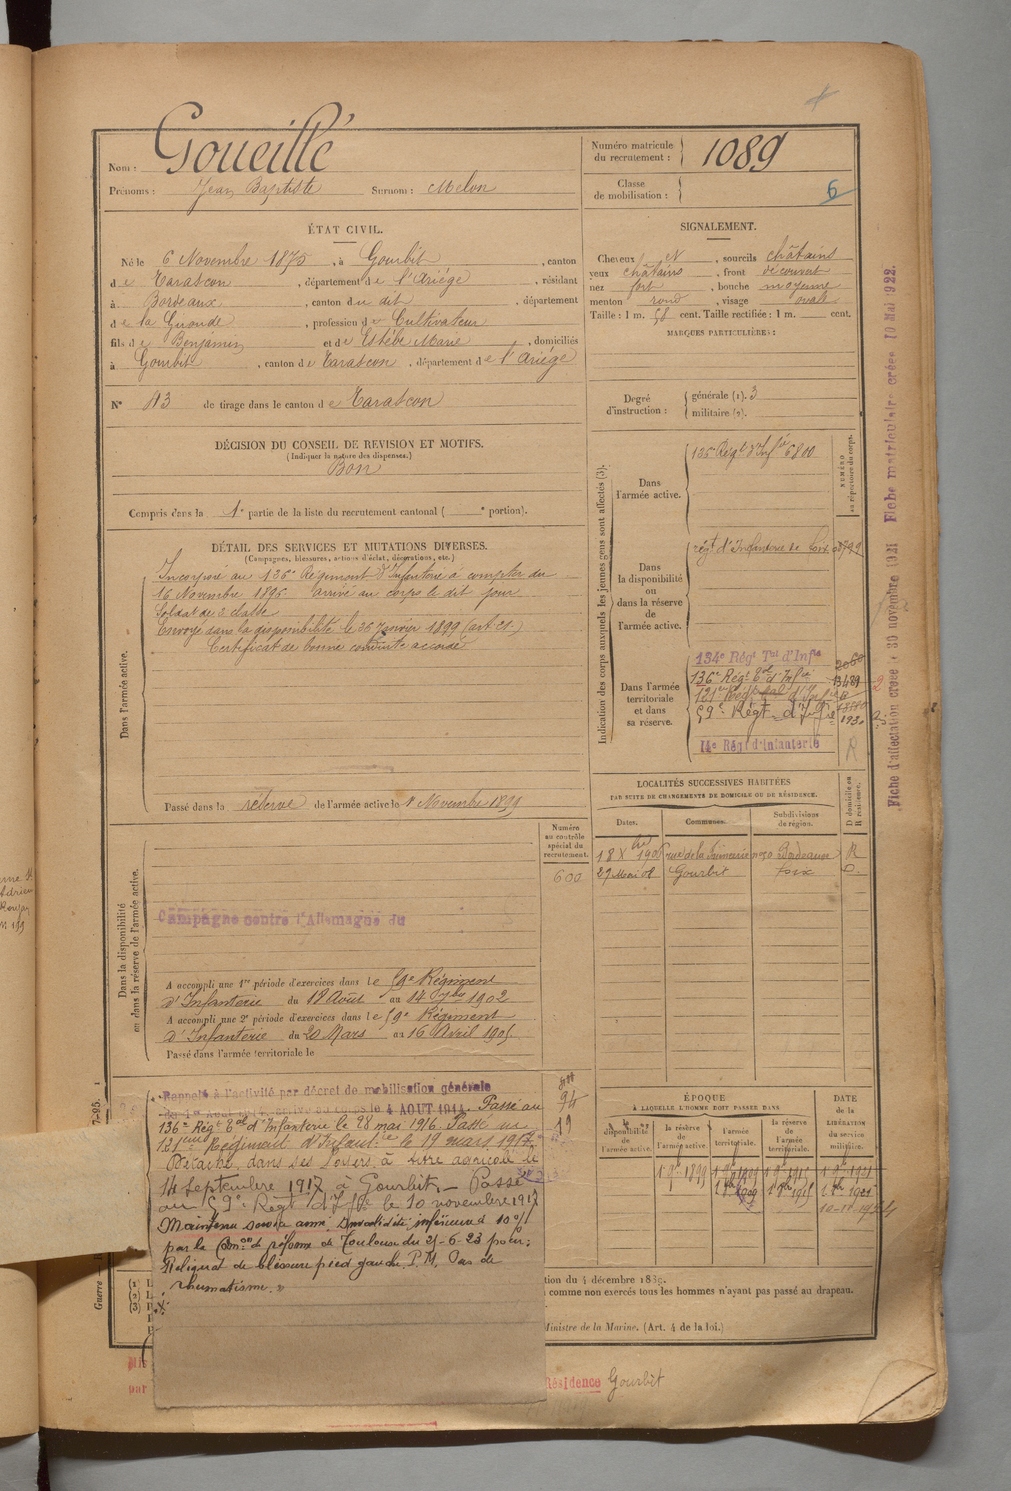 Nom : Goueillé
Prénoms : Jean Baptiste Surnom : Melon
Numéro matricule du recrutement : 1089
Classe de mobilisation :
6
ÉTAT CIVIL.
Né le 6 Novembre 1875, à Gourbit, canton
de Tarascon, département de l'Ariége, résidant
à Bordeaux, canton du dit, département
de la Gironde, profession de Cultivateur
fils de Benjamin et de Estèbe Marie, domiciliés
à Gourbit, canton de Tarascon, département de l'Ariége
N° 113 de tirage dans le canton de Tarascon
SIGNALEMENT.
Cheveux N, sourcils châtains
yeux châtains, front découvert
nez fort, bouche moyenne
menton rond, visage ovale
Taille : 1 m. 58 cent. Taille rectifiée : 1 m. cent.
MARQUES PARTICULIÈRES :
Degré d'instruction : générale (1). 3
militaire (2).
DÉCISION DU CONSEIL DE REVISION ET MOTIFS.
(Indiquer la nature des dispenses.)
Bon
Compris dans la 1e partie de la liste du recrutement cantonal ( e portion).
DÉTAIL DES SERVICES ET MUTATIONS DIVERSES.
(Campagnes, blessures, actions d'éclat, décorations, etc.)
Dans l'armée active.
Incorporé au 136e Régiment d'Infanterie à compter du
16 Novembre 1896 arrivé au corps le dit jour
Soldat de 2 classe
Envoyé dans la disponibilité le 26 Janvier 1899 (art 21)
Certificat de bonne conduite accordé
Passé dans la réserve de l'armée active le 1 Novembre 1899
Indication des corps auxquels les jeunes gens sont affectés (3).
NUMÉRO au répertoire du corps.
Dans l'armée active.
136 Régt d'Infie 6800
Dans la disponibilité ou dans la réserve de l'armée active.
régt d'Infanterie de Foix
Dans l'armée territoriale et dans sa réserve.
134e Régt Tal d'Infie
136e Régt Tal d'Infie 13489
121e Régt d'Infie
59e Régt d'Infie
14e Régt d'Infanterie R
Fiche d'affectation créée le 30 novembre 1921 Fiche matriculaire créée 10 Mai 1922.
LOCALITÉS SUCCESSIVES HABITÉES
PAR SUITE DE CHANGEMENTS DE DOMICILE OU DE RÉSIDENCE.
Dates. Communes. Subdivisions de région. D domicile ou R résidence.
Bordeaux R
27 Mai 08 Gourbit Foix D.
Numéro au contrôle spécial du recrutement.
600
Dans la disponibilité ou dans la réserve de l'armée active.
Campagne contre l'Allemagne du
A accompli une 1re période d'exercices dans le 59e Régiment
d'Infanterie du 18 Août au 14 7bre 1902
A accompli une 2e période d'exercices dans le 59e Régiment
d'Infanterie du 20 Mars au 16 Avril 1905
Passé dans l'armée territoriale le
Rappelé à l'activité par décret de mobilisation générale
du 1er Août 1914, arrivé au corps le 4 AOUT 1914. Passé au
136e Régt Tal d'Infanterie le 28 mai 1916. Passé au
121eme Régiment d'Infanterie le 19 mars 1917.
Détaché dans ses foyers à titre agricole le
14 Septembre 1917 à Gourbit. Passé
au 59e Régt d'Ifie le 10 novembre 1917
Maintenu service armé. Invalidité inférieure à 10%
par la Con de réforme de Toulouse du 21-6-23 pour :
Reliquat de blessure pied gauche, P.M. Pas de
rhumatisme. »
94
19
ÉPOQUE
À LAQUELLE L'HOMME DOIT PASSER DANS
la disponibilité de l'armée active. la réserve de l'armée active. l'armée territoriale. la réserve de l'armée territoriale.
DATE de la LIBÉRATION du service militaire.
1 9bre 1899 1 9bre 1909 1 9bre 1915 1 9bre 1921
1 8bre 1909 1 8bre 1915 1 8bre 1921
tion du 4 décembre 1889.
comme non exercés tous les hommes n'ayant pas passé au drapeau.
Ministre de la Marine. (Art. 4 de la loi.)
Guerre
Résidence Gourbit
par